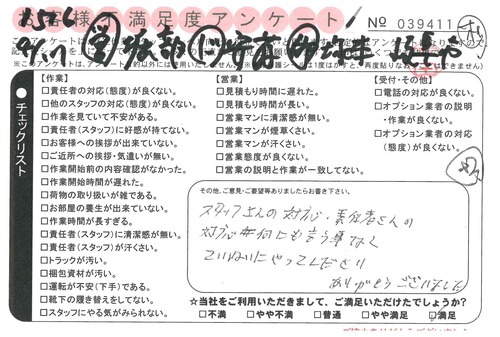 お客様不満足度アンケート
No 039411
【作業】
□責任者の対応(態度)が良くない。
□他のスタッフの対応(態度)が良くない。
□作業を見ていて不安がある。
□責任者(スタッフ)に好感が持てない。
□お客様への挨拶が出来ていない。
□ご近所への挨拶・気遣いが無い。
□作業開始前の内容確認がなかった。
□作業開始時間が遅れた。
□荷物の取り扱いが雑である。
□お部屋の養生が出来ていない。
□作業時間が長すぎる。
□責任者(スタッフ)に清潔感が無い。
□責任者(スタッフ)が汗くさい。
□トラックが汚い。
□梱包資材が汚い。
□運転が不安(下手)である。
□靴下の履き替えをしてない。
□スタッフにやる気がみられない。
【営業】
□見積もり時間に遅れた。
□見積もり時間が長い。
□営業マンに清潔感が無い。
□営業マンが煙草くさい。
□営業マンが汗くさい。
□営業態度が良くない。
□営業の説明と作業が一致してない。
【受付・その他】
□電話の対応が良くない。
□オプション業者の説明
・作業が良くない。
□オプション業者の対応
(態度)が良くない。
チェックリスト
その他、ご意見・ご要望等ありましたらお書き下さい。
スタッフさんの対応・責任者さんの
対応共何にも言う事なく
ていねいにやってくださり
ありがとうございました
☆当社をご利用いただきまして、ご満足いただけたでしょうか?
□不満 □やや不満 □普通 □やや満足 □満足